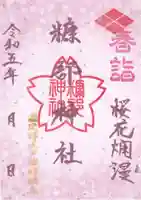 春詣
桜花爛漫
糠部神社
令和五年
月
日